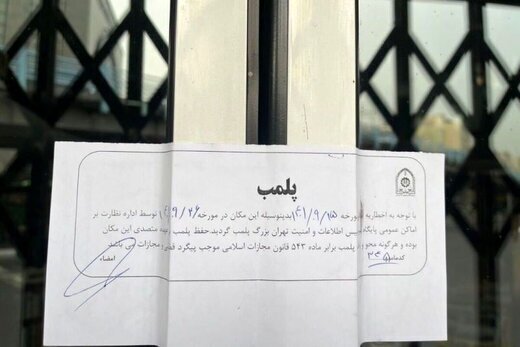 پلمب
با توجه به اخطاریه مورخه ۱۴۰۱/۹/۲۵ بدینوسیله این مکان در مورخه ۱۴۰۱/۹/۲۶ توسط اداره نظارت بر
اماکن عمومی پایگاه پلیس اطلاعات و امنیت تهران بزرگ پلمب گردید.حفظ پلمب بعهده متصدی این مکان
بوده و هرگونه محو پلمب برابر ماده ۵۴۳ قانون مجازات اسلامی موجب پیگرد و مجازات می باشد.
کدماده امضاء